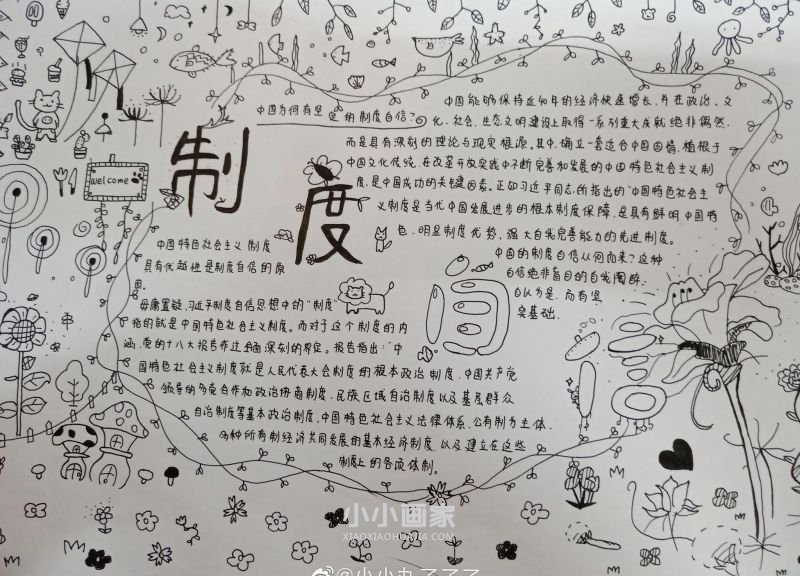 中国为何有坚定的制度自信？
制度自信
welcome
中国能够保持近40年的经济快速增长，并在政治、文
化、社会、生态文明建设上取得一系列重大成就绝非偶然，
而是具有深刻的理论与现实根源。其中，确立一套适合中国国情，植根于
中国文化传统，在改革开放实践中不断完善和发展的中国特色社会主义制
度，是中国成功的关键因素。正如习近平同志所指出的“中国特色社会主
义制度是当代中国发展进步的根本制度保障，是具有鲜明中国特
色，明显制度优势，强大自我完善能力的先进制度。
中国的制度自信从何而来？这种
自信绝非盲目的自我陶醉，
自以为是，而有坚
实基础．
中国特色社会主义制度
具有优越性是制度自信的原
毋庸置疑，习近平制度自信思想中的“制度”
指的就是中国特色社会主义制度。而对于这个制度的内
涵，党的十八大报告作过全面深刻的界定。报告指出：“中
国特色社会主义制度就是人民代表大会制度的根本政治制度，中国共产党
领导的多党合作和政治协商制度，民族区域自治制度以及基层群众
自治制度等基本政治制度，中国特色社会主义法律体系，公有制为主体，
多种所有制经济共同发展的基本经济制度，以及建立在这些
制度上的各项体制。
小小画家
XIAOXIAOHUAJIA.COM